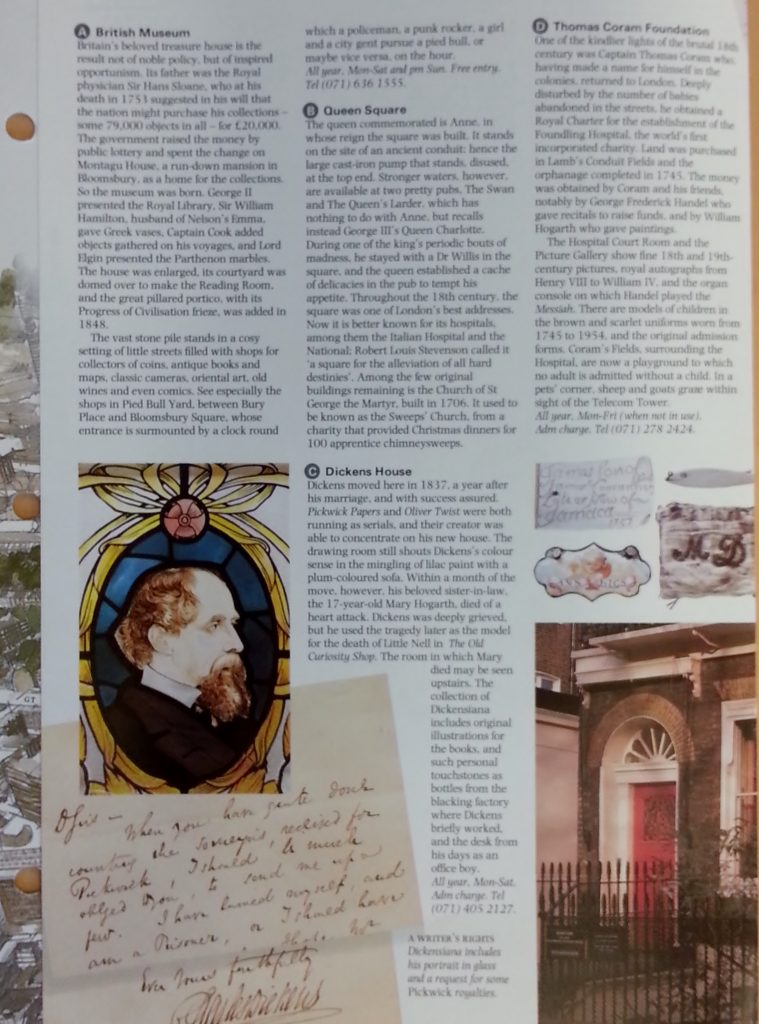 A British Museum
Britain's beloved treasure house is the
result not of noble policy, but of inspired
opportunism. Its father was the Royal
physician Sir Hans Sloane, who at his
death in 1753 suggested in his will that
the nation might purchase his collections –
some 79,000 objects in all – for £20,000.
The government raised the money by
public lottery and spent the change on
Montagu House, a run-down mansion in
Bloomsbury, as a home for the collections.
So the museum was born. George II
presented the Royal Library, Sir William
Hamilton, husband of Nelson's Emma,
gave Greek vases, Captain Cook added
objects gathered on his voyages, and Lord
Elgin presented the Parthenon marbles.
The house was enlarged, its courtyard was
domed over to make the Reading Room,
and the great pillared portico, with its
Progress of Civilisation frieze, was added in
1848.
The vast stone pile stands in a cosy
setting of little streets filled with shops for
collectors of coins, antique books and
maps, classic cameras, oriental art, old
wines and even comics. See especially the
shops in Pied Bull Yard, between Bury
Place and Bloomsbury Square, whose
entrance is surmounted by a clock round
which a policeman, a punk rocker, a girl
and a city gent pursue a pied bull, or
maybe vice versa, on the hour.
All year, Mon-Sat and pm Sun. Free entry.
Tel (071) 636 1555.
B Queen Square
The queen commemorated is Anne, in
whose reign the square was built. It stands
on the site of an ancient conduit: hence the
large cast-iron pump that stands, disused,
at the top end. Stronger waters, however,
are available at two pretty pubs. The Swan
and The Queen's Larder, which has
nothing to do with Anne, but recalls
instead George III's Queen Charlotte.
During one of the king's periodic bouts of
madness, he stayed with a Dr Willis in the
square, and the queen established a cache
of delicacies in the pub to tempt his
appetite. Throughout the 18th century, the
square was one of London's best addresses.
Now it is better known for its hospitals,
among them the Italian Hospital and the
National; Robert Louis Stevenson called it
'a square for the alleviation of all hard
destinies'. Among the few original
buildings remaining is the Church of St
George the Martyr, built in 1706. It used to
be known as the Sweeps' Church, from a
charity that provided Christmas dinners for
100 apprentice chimneysweeps.
C Dickens House
Dickens moved here in 1837, a year after
his marriage, and with success assured.
Pickwick Papers and Oliver Twist were both
running as serials, and their creator was
able to concentrate on his new house. The
drawing room still shouts Dickens's colour
sense in the mingling of lilac paint with a
plum-coloured sofa. Within a month of the
move, however, his beloved sister-in-law,
the 17-year-old Mary Hogarth, died of a
heart attack. Dickens was deeply grieved,
but he used the tragedy later as the model
for the death of Little Nell in The Old
Curiosity Shop. The room in which Mary
died may be seen
upstairs. The
collection of
Dickensiana
includes original
illustrations for
the books, and
such personal
touchstones as
bottles from the
blacking factory
where Dickens
briefly worked,
and the desk from
his days as an
office boy.
All year, Mon-Sat.
Adm charge. Tel
(071) 405 2127.
A WRITER'S RIGHTS
Dickensiana includes
his portrait in glass
and a request for some
Pickwick royalties.
D Thomas Coram Foundation
One of the kindlier lights of the brutal 18th
century was Captain Thomas Coram who,
having made a name for himself in the
colonies, returned to London. Deeply
disturbed by the number of babies
abandoned in the streets, he obtained a
Royal Charter for the establishment of the
Foundling Hospital, the world's first
incorporated charity. Land was purchased
in Lamb's Conduit Fields and the
orphanage completed in 1745. The money
was obtained by Coram and his friends,
notably by George Frederick Handel who
gave recitals to raise funds, and by William
Hogarth who gave paintings.
The Hospital Court Room and the
Picture Gallery show fine 18th and 19th-
century pictures, royal autographs from
Henry VIII to William IV, and the organ
console on which Handel played the
Messiah. There are models of children in
the brown and scarlet uniforms worn from
1745 to 1954, and the original admission
forms. Coram's Fields, surrounding the
Hospital, are now a playground to which
no adult is admitted without a child. In a
pets' corner, sheep and goats graze within
sight of the Telecom Tower.
All year, Mon-Fri (when not in use).
Adm charge. Tel (071) 278 2424.
Jamaica
1757
M D
GT
When you have quite done
counting the sovereigns received for
Pickwick, I should be much
obliged to you, to send me up a
few. I have burned myself, and
am a Prisoner, or I should have
not
Ever Yours faithfully
Charles Dickens